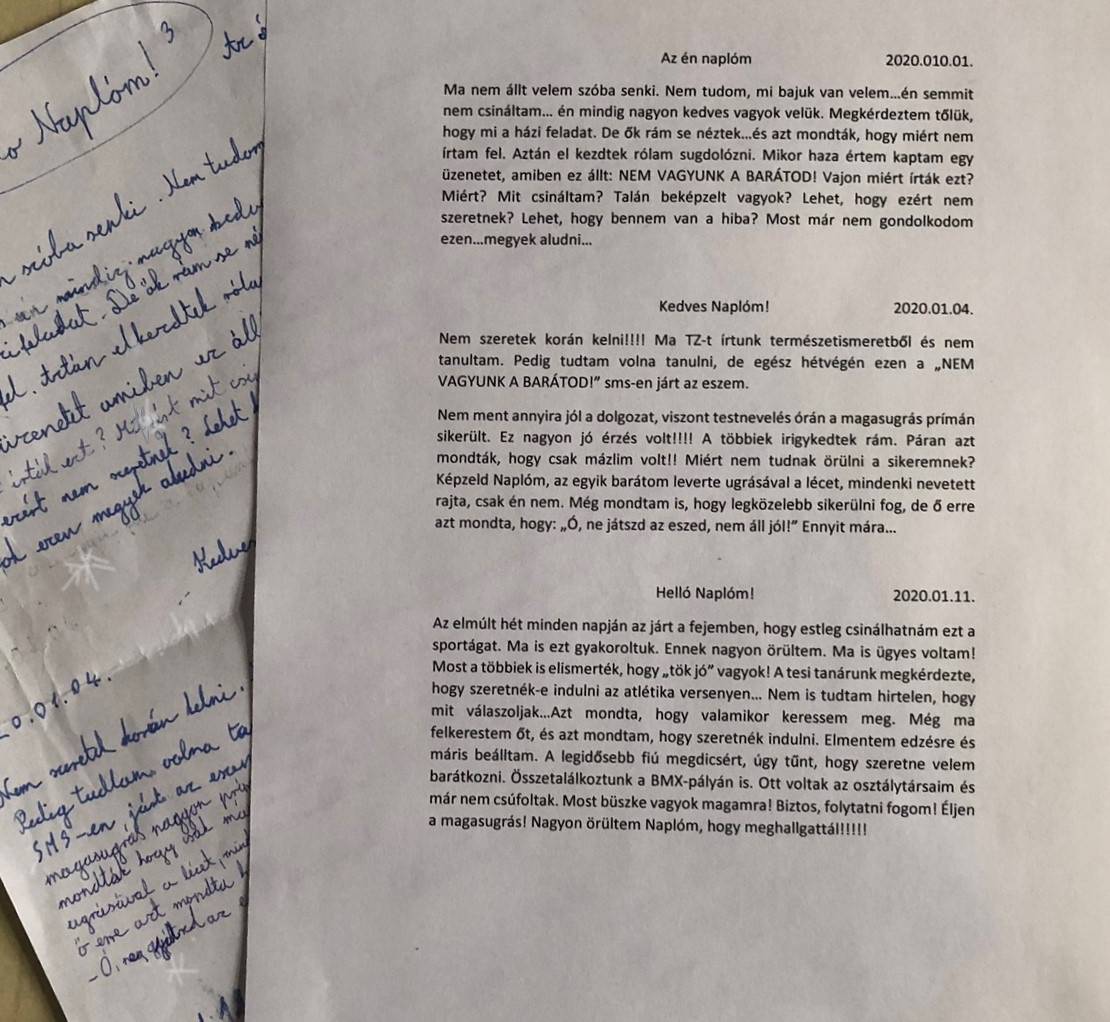 o Naplóm! 3
szóba senki. Nem tudom
én mindig nagyon kedv
feladat. De ők rám se né
fel. Aztán elkezdtek róla
üzenetet amiben ez áll
írták ezt? Miért mit csi
ezért nem szeretnek? Lehet
ezen megyek aludni.
Kedves
0.01.04.
Nem szeretek korán kelni.
Pedig tudtam volna ta
SMS-en járt az esze
magasugrás nagyon prí
mondták hogy csak má
ugrásával a lécet, mind
ő erre azt mondta h
Az én naplóm 2020.010.01.
Ma nem állt velem szóba senki. Nem tudom, mi bajuk van velem...én semmit
nem csináltam... én mindig nagyon kedves vagyok velük. Megkérdeztem tőlük,
hogy mi a házi feladat. De ők rám se néztek...és azt mondták, hogy miért nem
írtam fel. Aztán el kezdtek rólam sugdolózni. Mikor haza értem kaptam egy
üzenetet, amiben ez állt: NEM VAGYUNK A BARÁTOD! Vajon miért írták ezt?
Miért? Mit csináltam? Talán beképzelt vagyok? Lehet, hogy ezért nem
szeretnek? Lehet, hogy bennem van a hiba? Most már nem gondolkodom
ezen...megyek aludni...
Kedves Naplóm! 2020.01.04.
Nem szeretek korán kelni!!!! Ma TZ-t írtunk természetismeretből és nem
tanultam. Pedig tudtam volna tanulni, de egész hétvégén ezen a „NEM
VAGYUNK A BARÁTOD!” sms-en járt az eszem.
Nem ment annyira jól a dolgozat, viszont testnevelés órán a magasugrás prímán
sikerült. Ez nagyon jó érzés volt!!!! A többiek irigykedtek rám. Páran azt
mondták, hogy csak mázlim volt!! Miért nem tudnak örülni a sikeremnek?
Képzeld Naplóm, az egyik barátom leverte ugrásával a lécet, mindenki nevetett
rajta, csak én nem. Még mondtam is, hogy legközelebb sikerülni fog, de ő erre
azt mondta, hogy: „Ó, ne játszd az eszed, nem áll jól!” Ennyit mára...
Helló Naplóm! 2020.01.11.
Az elmúlt hét minden napján az járt a fejemben, hogy estleg csinálhatnám ezt a
sportágat. Ma is ezt gyakoroltuk. Ennek nagyon örültem. Ma is ügyes voltam!
Most a többiek is elismerték, hogy „tök jó” vagyok! A tesi tanárunk megkérdezte,
hogy szeretnék-e indulni az atlétika versenyen... Nem is tudtam hirtelen, hogy
mit válaszoljak...Azt mondta, hogy valamikor keressem meg. Még ma
felkerestem őt, és azt mondtam, hogy szeretnék indulni. Elmentem edzésre és
máris beálltam. A legidősebb fiú megdicsért, úgy tűnt, hogy szeretne velem
barátkozni. Összetalálkoztunk a BMX-pályán is. Ott voltak az osztálytársaim és
már nem csúfoltak. Most büszke vagyok magamra! Biztos, folytatni fogom! Éljen
a magasugrás! Nagyon örültem Naplóm, hogy meghallgattál!!!!!!